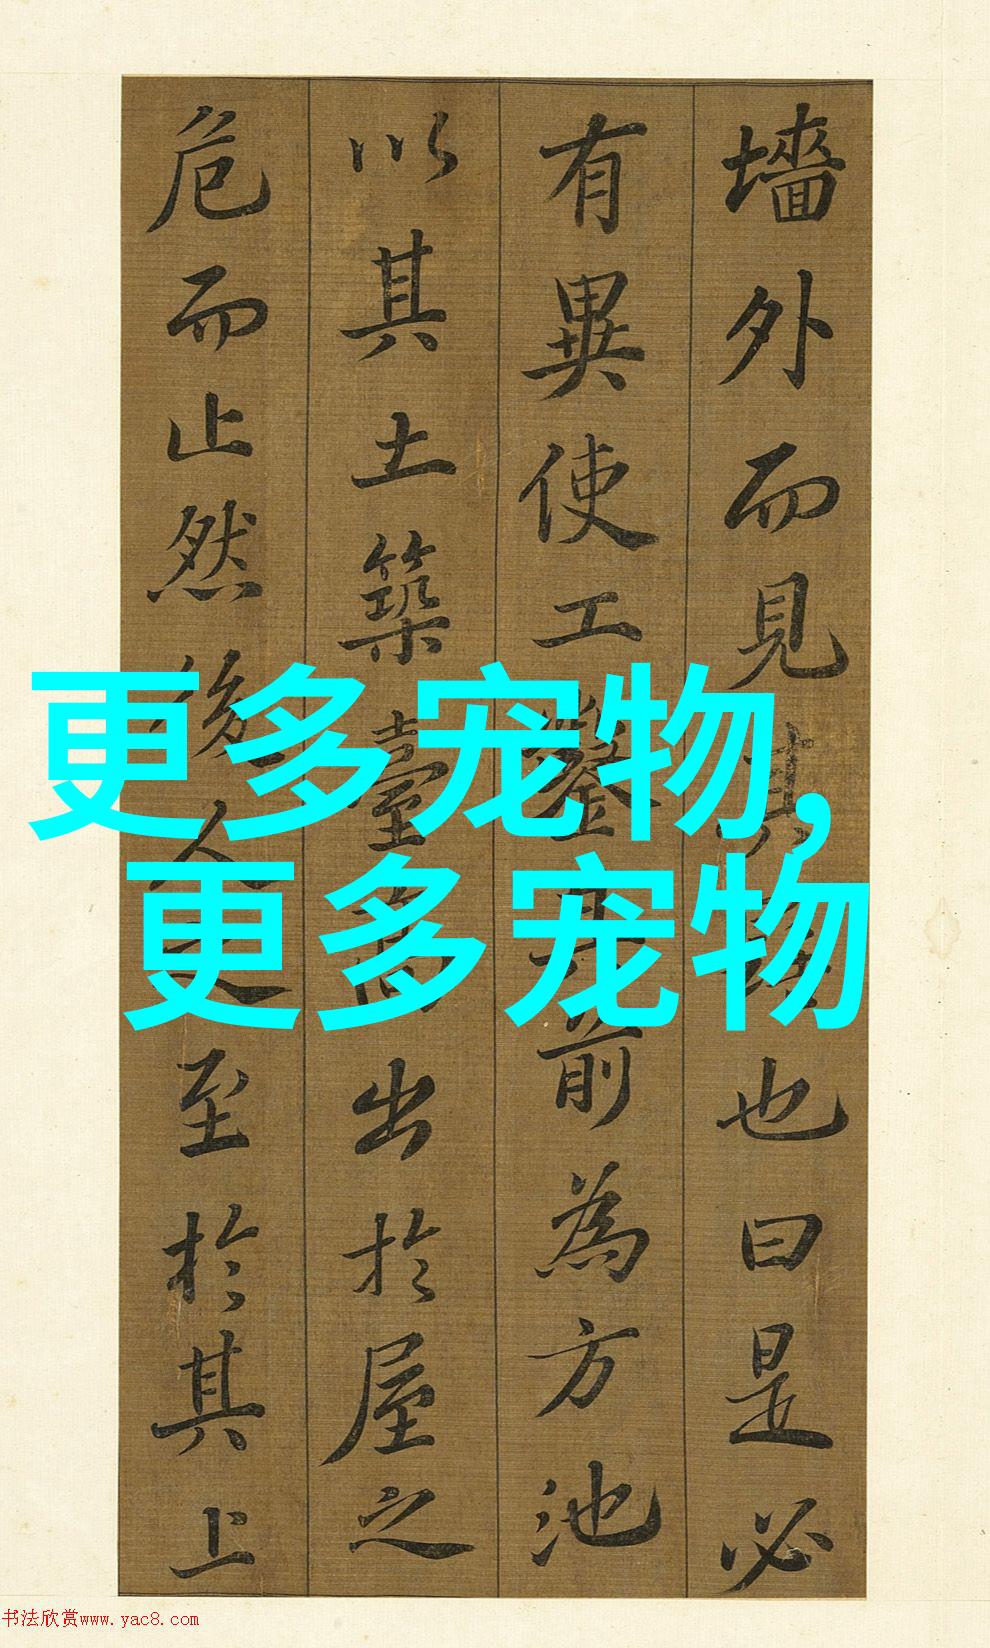 墻外而見其也曰是必
有異使工鑿前為方池
以其土築臺高出於屋之
危而止然後人之至於其上
更多宠物,
更多宠物
书法欣赏www.yac8.com